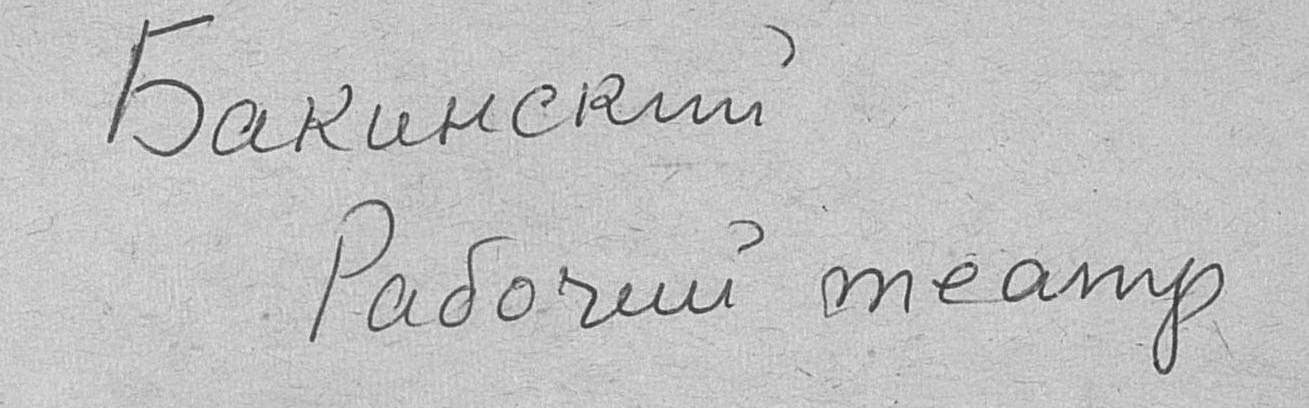 Бакинский
Рабочий театр